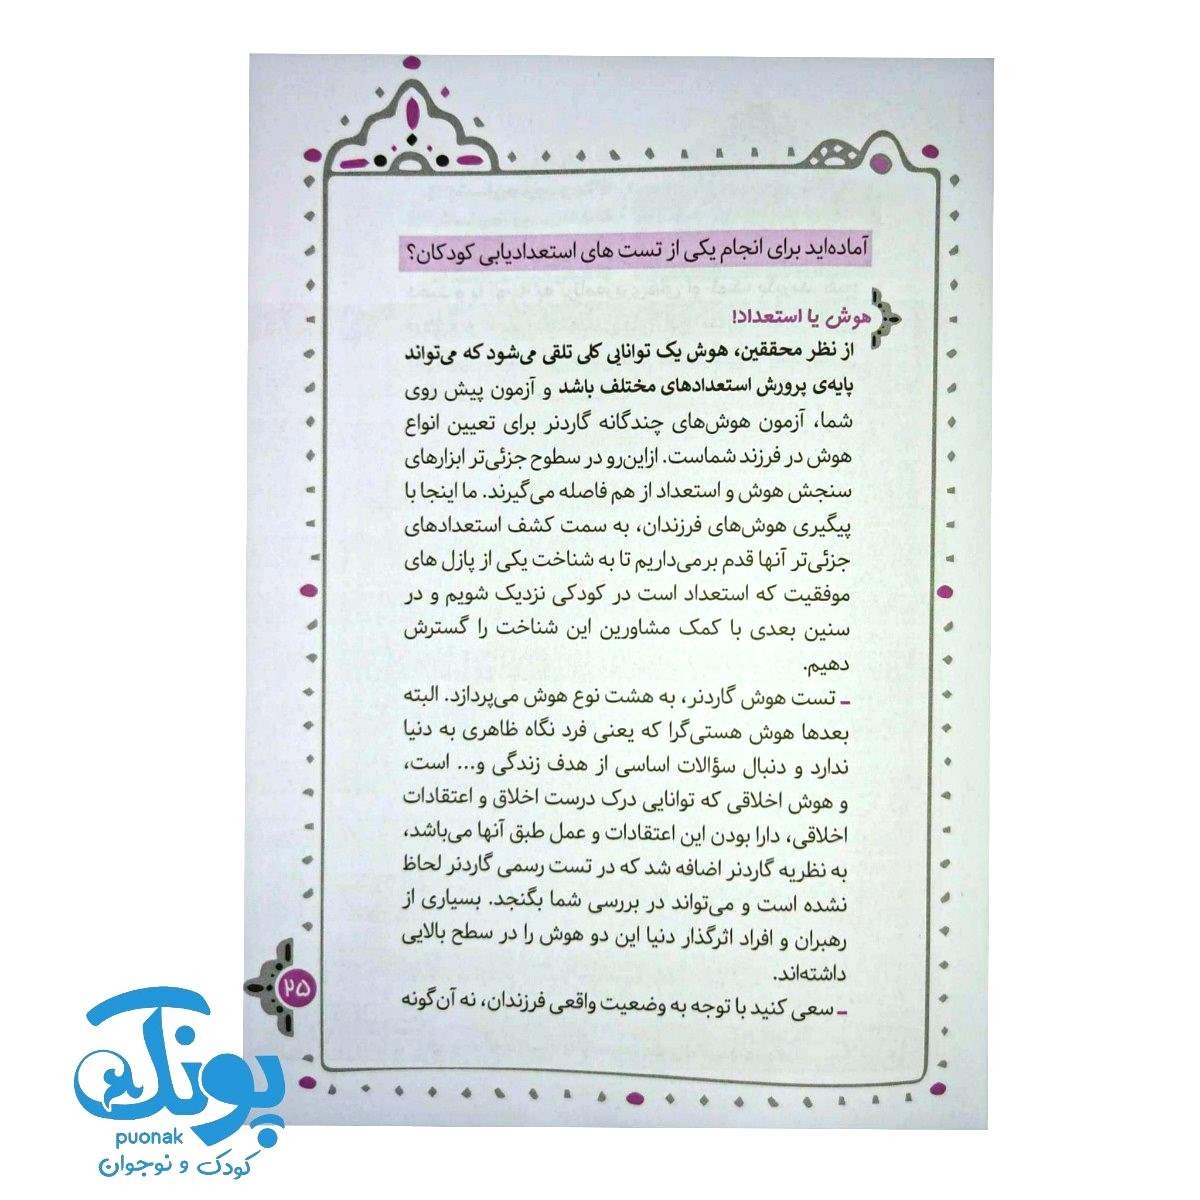 آماده‌اید برای انجام یکی از تست های استعدادیابی کودکان؟
هوش یا استعداد!
از نظر محققین، هوش یک توانایی کلی تلقی می‌شود که می‌تواند
پایه‌ی پرورش استعدادهای مختلف باشد و آزمون پیش روی
شما، آزمون هوش‌های چندگانه گاردنر برای تعیین انواع
هوش در فرزند شماست. ازاین‌رو در سطوح جزئی‌تر ابزارهای
سنجش هوش و استعداد از هم فاصله می‌گیرند. ما اینجا با
پیگیری هوش‌های فرزندان، به سمت کشف استعدادهای
جزئی‌تر آنها قدم برمی‌داریم تا به شناخت یکی از پازل های
موفقیت که استعداد است در کودکی نزدیک شویم و در
سنین بعدی با کمک مشاورین این شناخت را گسترش
دهیم.
ـ تست هوش گاردنر، به هشت نوع هوش می‌پردازد. البته
بعدها هوش هستی‌گرا که یعنی فرد نگاه ظاهری به دنیا
ندارد و دنبال سؤالات اساسی از هدف زندگی و... است،
و هوش اخلاقی که توانایی درک درست اخلاق و اعتقادات
اخلاقی، دارا بودن این اعتقادات و عمل طبق آنها می‌باشد،
به نظریه گاردنر اضافه شد که در تست رسمی گاردنر لحاظ
نشده است و می‌تواند در بررسی شما بگنجد. بسیاری از
رهبران و افراد اثرگذار دنیا این دو هوش را در سطح بالایی
داشته‌اند.
ـ سعی کنید با توجه به وضعیت واقعی فرزندان، نه آن‌گونه
۲۵
پونک
puonak
کودک و نوجوان